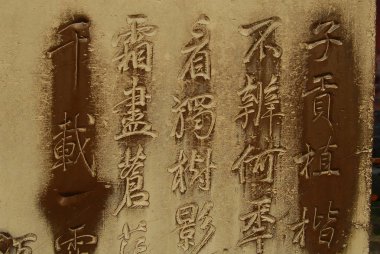 子貢植楷
不辨何秊
看獨樹影
霜盡蒼
千載一